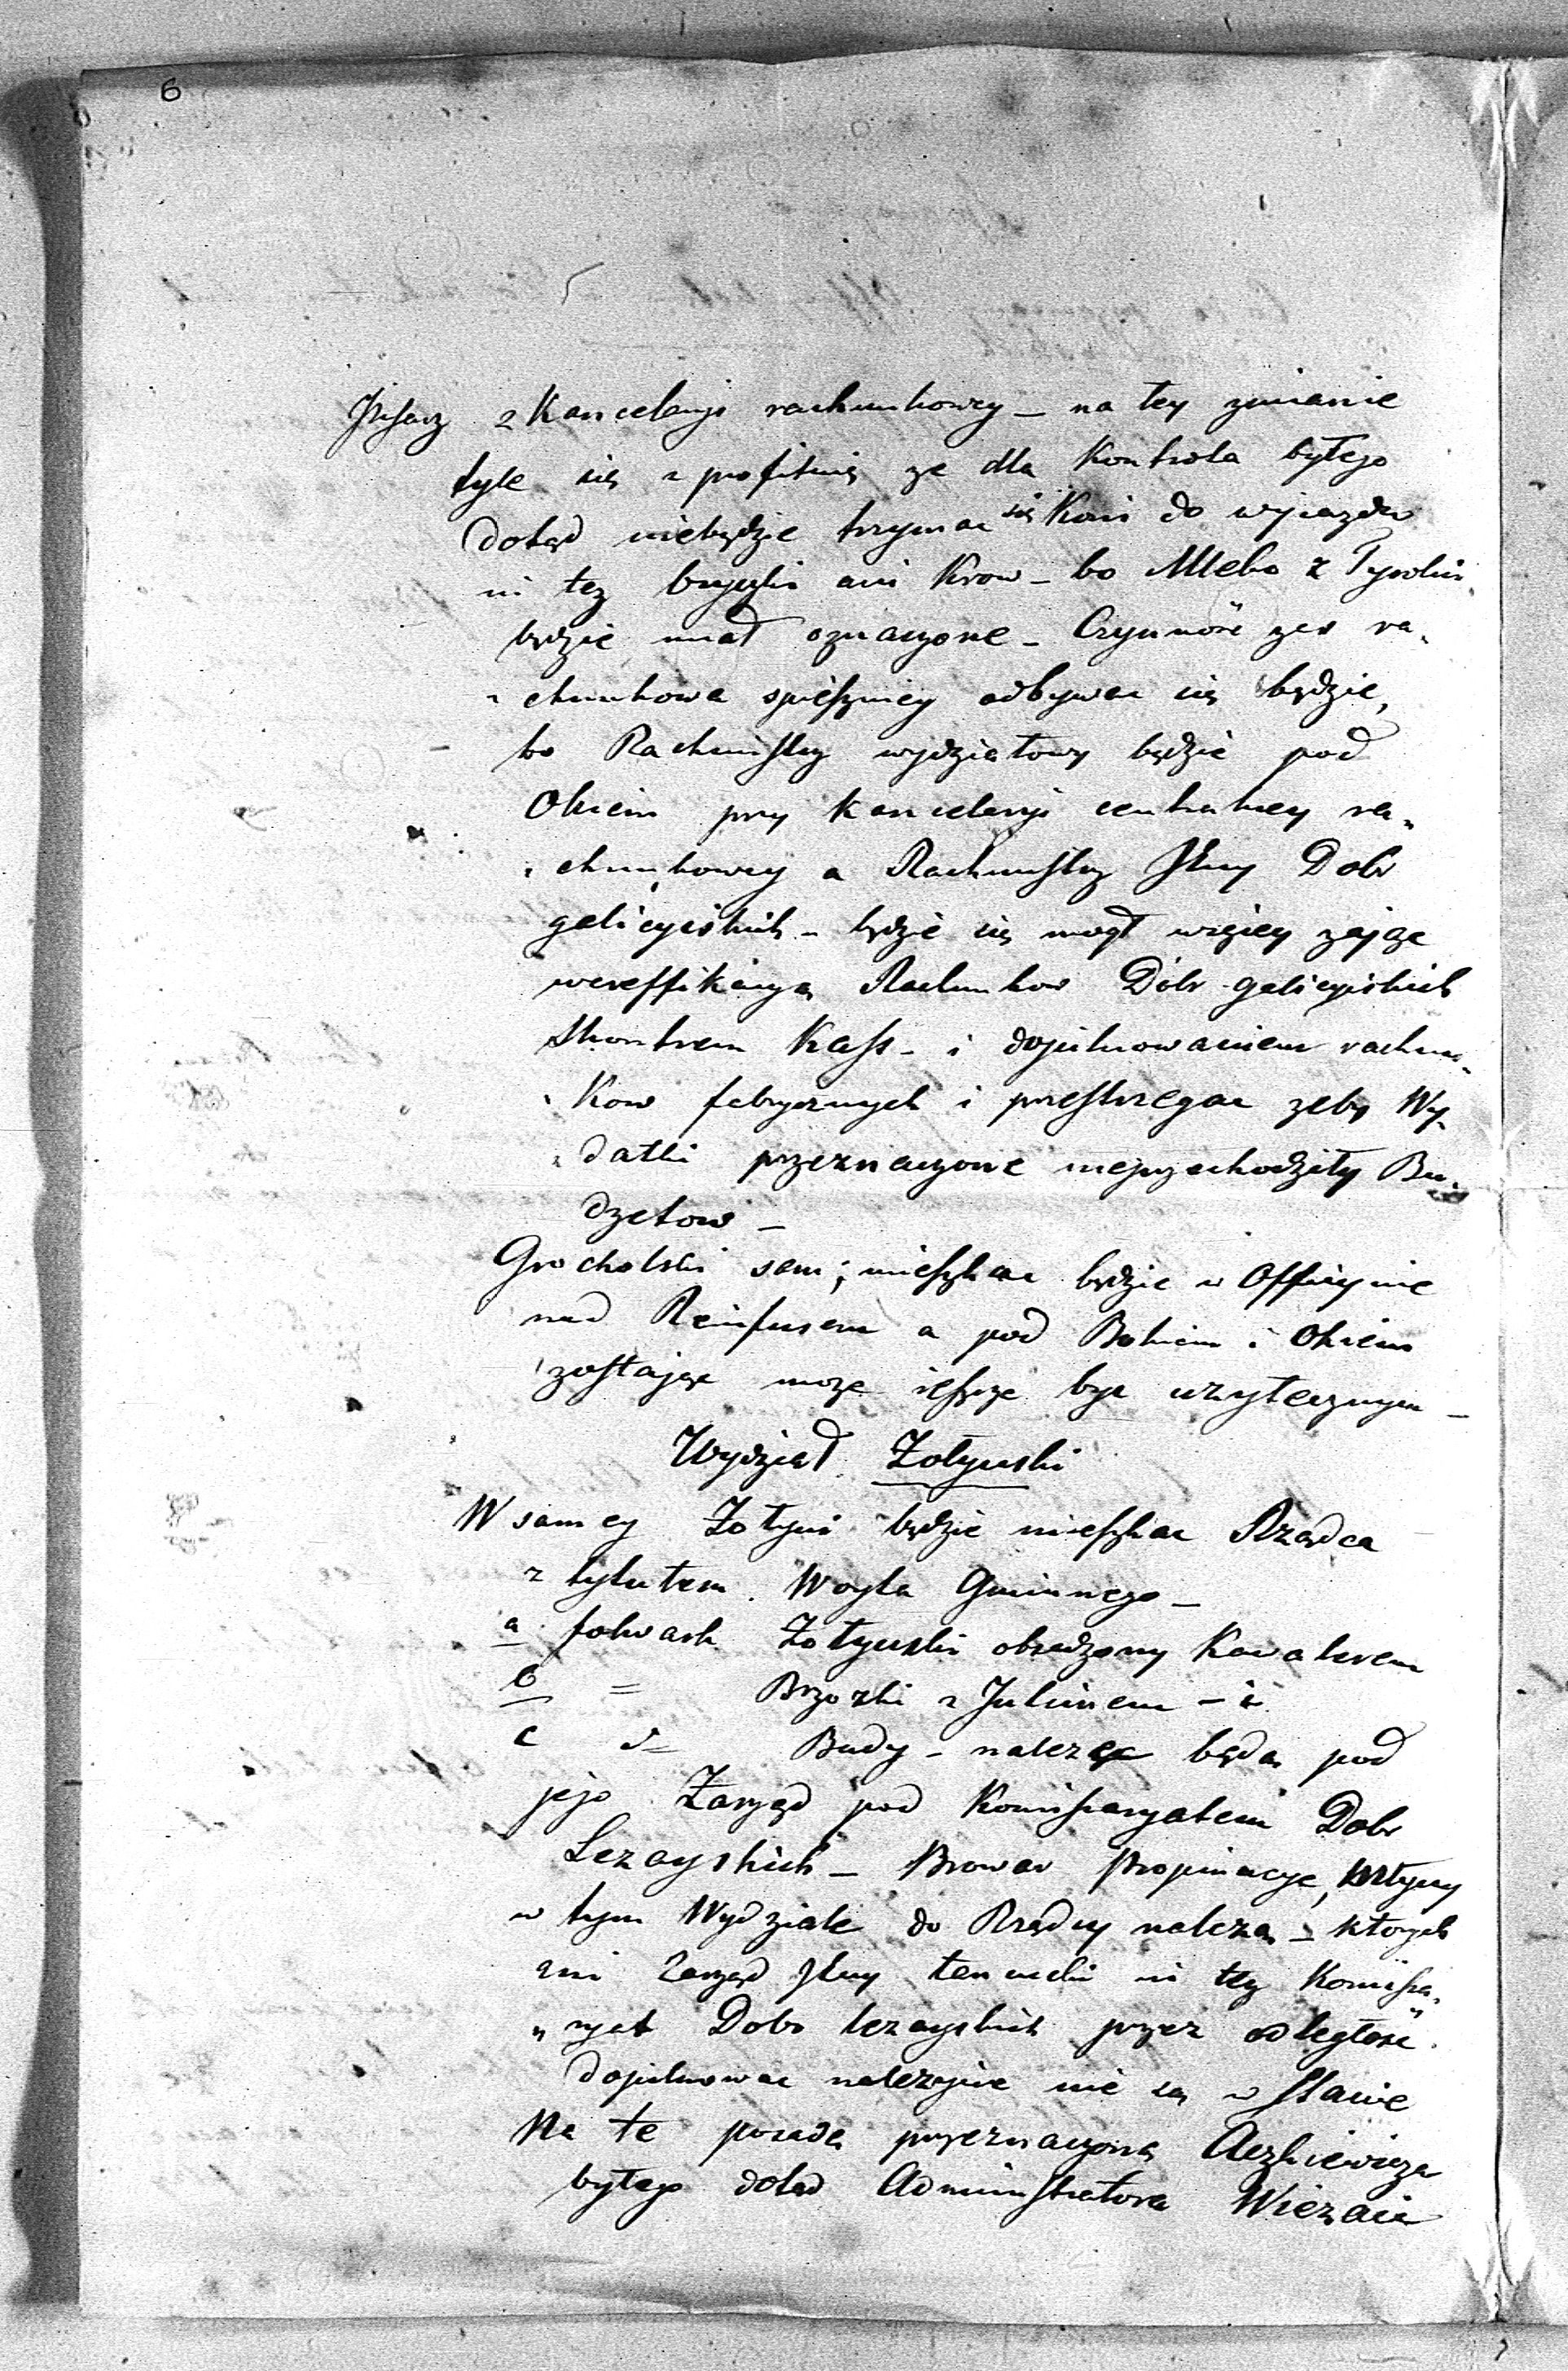 6
Pisarz z Kancelaryi rachunkowey – na tey zmianie
tyle się sprofituię ze dla Kontrola byłego
dotąd niebędzie trzymac się Koni do wyiazdu
ni tez bryczki ani Krow – bo Mleko z Tyrolii
będzie miał oznaczone – Czynność zas ra„
„chunkowa spieszniey odbywac się będzie,
bo Rachmistrz wydziałowy będzie pod
Okiem przy Kancelaryi centralney ra„
„chunkowey a Rachmistrz Jlny Dobr
galicyiskich – będzie się mogł więcey zająć
wereffikacyą Rachunkow Dóbr galicyiskich
Skontrem Kass – i dopilnowaniem rachun„
„kow fabrycznych i przestrzegac zeby Wy„
„datki przeznaczone nieprzechodziły Bu„
dzetow –
Grocholski sam; mieszkac będzie w Officynie
nad Reinfusem a pod Bokiem i Okiem
zostając moze ieszcze byc uzytecznym –
Wydział Żołynski
W samey Żołyni będzie mieszkac Rządca
z tytułem Woyta Gminnego –
a folwark Żołynski obsadzony Kawalerem
b = Brzozki z Julinem – i
c d= Budy – nalezec będą pod
jego Zarząd pod Komissaryatem Dobr
Lezayskich – Browar Propinacye, Młyny
w tym Wydziale do Rządcy nalezą – ktorych
ani Zarząd Jlny łancucki ni tez Komissa„
„ryat Dobr lezayskich przez odległosc
dopilnowac nalezycie nie są w stanie
Na te posadę przeznaczoną
byłego dotąd Administratora